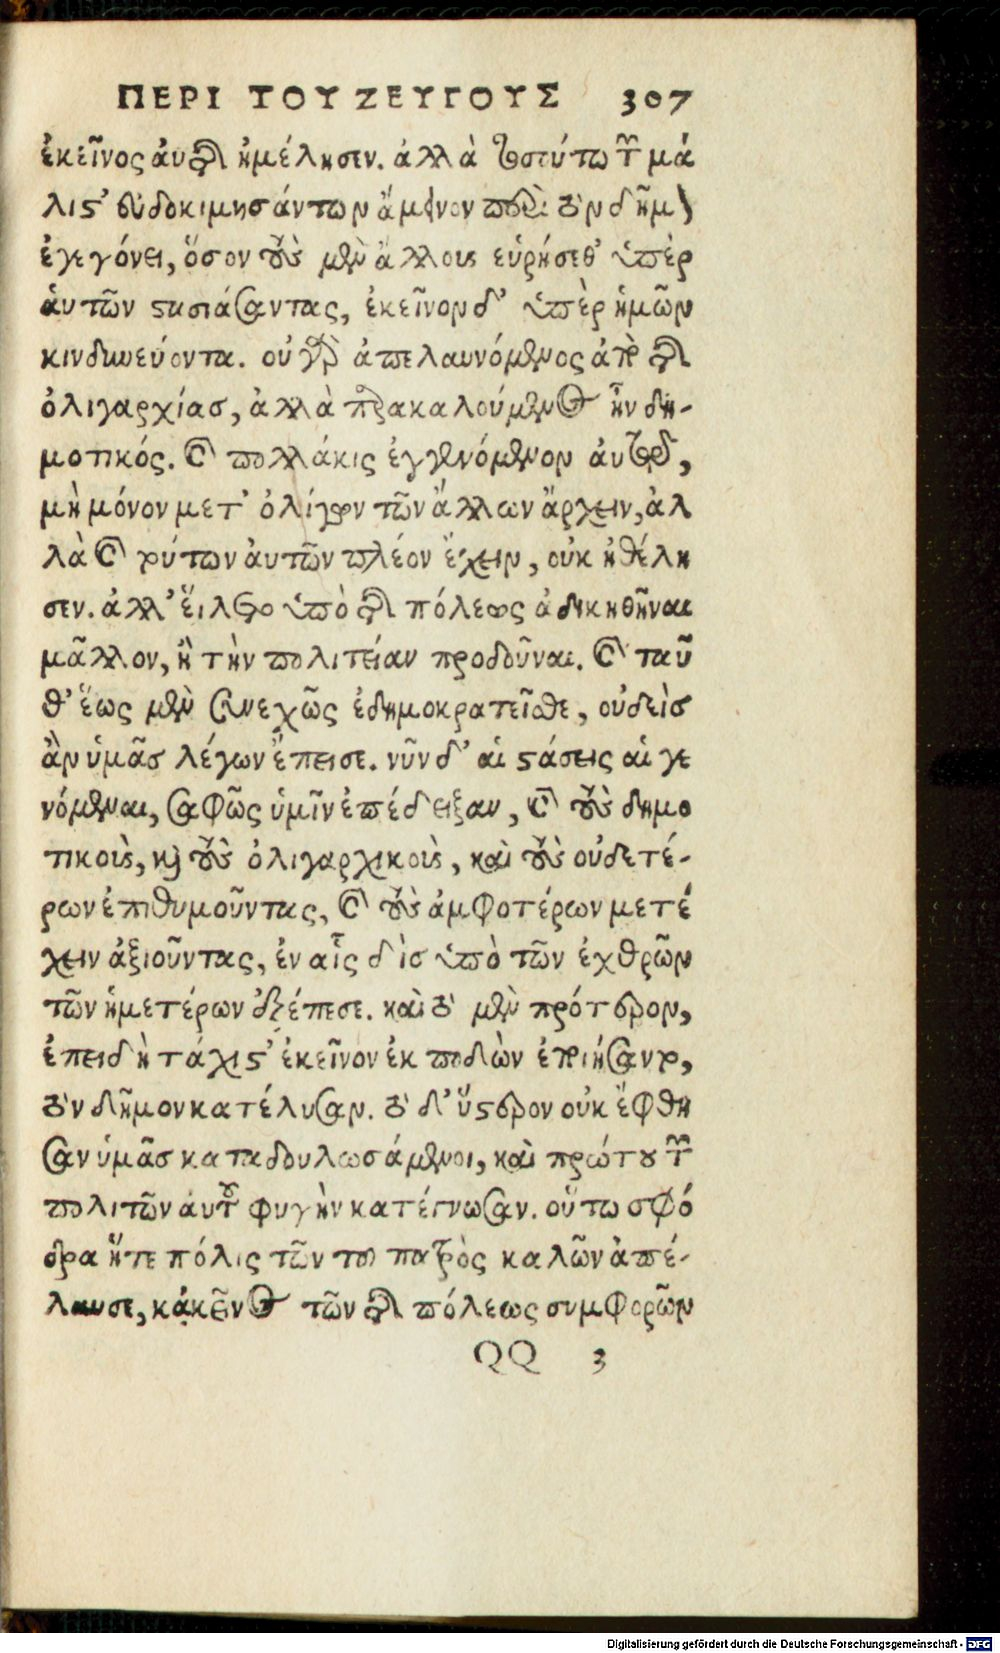 ΠΕΡΙ ΤΟΥ ΖΕΥΓΟΥΣ 307
ἐκεῖνος αὐτῆς ἠμέλησεν. ἀλλὰ τοσούτῳ τῶν μά
λιστ’ εὐδοκιμησάντων ἄμεινον περὶ τὸν δῆμον
ἐγεγόνει, ὅσον τοὺς μὲν ἄλλους εὑρήσεθ’ ὑπὲρ
αὑτῶν στασιάσαντας, ἐκεῖνον δ’ ὑπὲρ ἡμῶν
κινδυνεύοντα. οὐ γὰρ ἀπελαυνόμενος ἀπὸ τῆς
ὀλιγαρχίας, ἀλλὰ παρακαλούμενος ἦν δη-
μοτικός. καὶ πολλάκις ἐγγενόμενον αὐτῷ,
μὴ μόνον μετ’ ὀλίγων τῶν ἄλλων ἄρχειν, ἀλ
λὰ καὶ τούτων αὐτῶν πλέον ἔχειν, οὐκ ἠθέλη
σεν. ἀλλ’ εἵλετο ὑπὸ τῆς πόλεως ἀδικηθῆναι
μᾶλλον, ἢ τὴν πολιτείαν προδοῦναι. καὶ ταῦ
θ’ ἕως μὲν συνεχῶς ἐδημοκρατεῖσθε, οὐδεὶς
ἂν ὑμᾶς λέγων ἔπεισε. νῦν δ’ αἱ στάσεις αἱ γε
νόμεναι, σαφῶς ὑμῖν ἐπέδειξαν, καὶ τοὺς δημο
τικοὺς, καὶ τοὺς ὀλιγαρχικοὺς, καὶ τοὺς οὐδετέ-
ρων ἐπιθυμοῦντας, καὶ τοὺς ἀμφοτέρων μετέ
χειν ἀξιοῦντας, ἐν αἷς δὶς ὑπὸ τῶν ἐχθρῶν
τῶν ἡμετέρων ἐξέπεσε. καὶ τὸ μὲν πρότερον,
ἐπειδὴ τάχιστ’ ἐκεῖνον ἐκ ποδὼν ἐποιήσαντο,
τὸν δῆμον κατέλυσαν. τὸ δ’ ὕστερον οὐκ ἔφθη
σαν ὑμᾶς καταδουλωσάμενοι, καὶ πρώτου τῶν
πολιτῶν αὐτοῦ φυγὴν κατέγνωσαν. οὕτω σφό
δρα ἥτε πόλις τῶν τοῦ πατρὸς καλῶν ἀπέ-
λαυσε, κἀκεῖνος τῶν τῆς πόλεως συμφορῶν
QQ 3
Digitalisierung gefördert durch die Deutsche Forschungsgemeinschaft - DFG